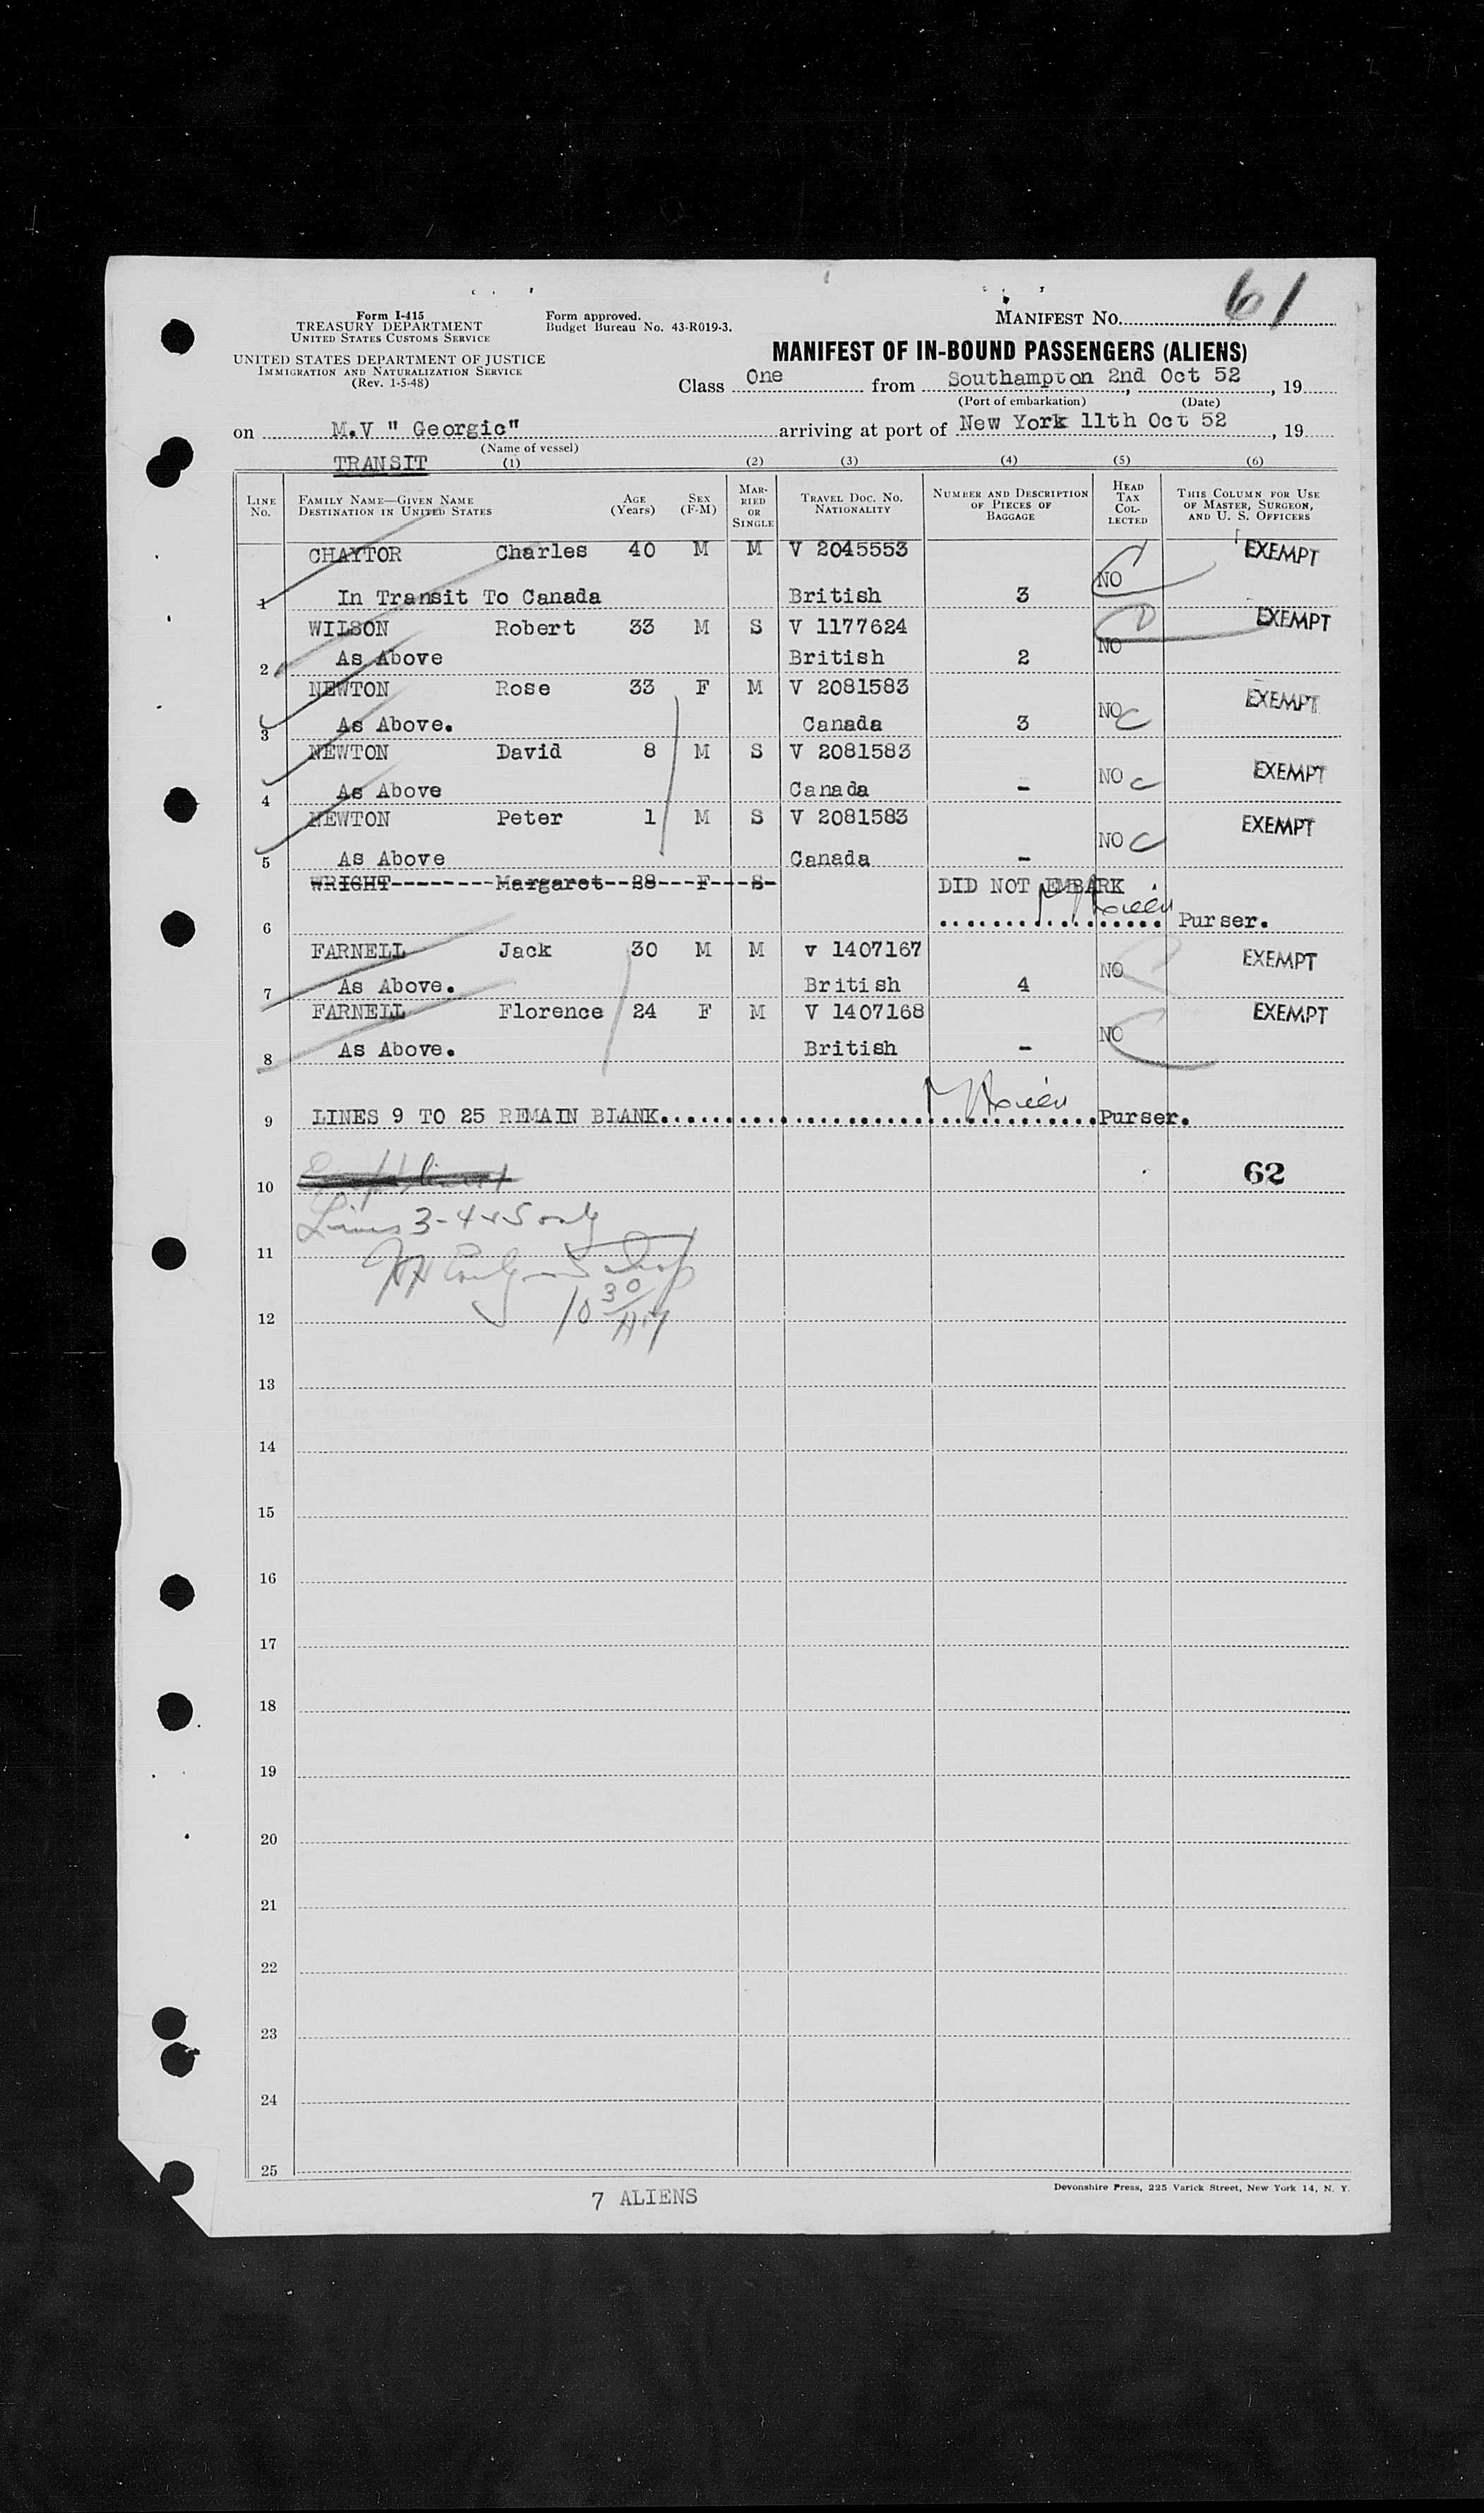 61
Form I-415
TREASURY DEPARTMENT
UNITED STATES CUSTOMS SERVICE
UNITED STATES DEPARTMENT OF JUSTICE
IMMIGRATION AND NATURALIZATION SERVICE
(Rev. 1-5-48)
Form approved.
Budget Bureau No. 43-R019-3.
MANIFEST NO.
MANIFEST OF IN-BOUND PASSENGERS (ALIENS)
Class One from Southampton 2nd Oct 52, 19
(Port of embarkation) (Date)
on M.V " Georgic" arriving at port of New York 11th Oct 52, 19
(Name of vessel)
TRANSIT (1) (2) (3) (4) (5) (6)
LINE NO. FAMILY NAME—GIVEN NAME DESTINATION IN UNITED STATES AGE (Years) SEX (F-M) MARRIED OR SINGLE TRAVEL DOC. NO. NATIONALITY NUMBER AND DESCRIPTION OF PIECES OF BAGGAGE HEAD TAX COLLECTED THIS COLUMN FOR USE OF MASTER, SURGEON, AND U. S. OFFICERS
CHAYTOR Charles 40 M M V 2045553 EXEMPT
1 In Transit To Canada British 3 NO
WILSON Robert 33 M S V 1177624 EXEMPT
2 As Above British 2 NO
NEWTON Rose 33 F M V 2081583 EXEMPT
3 As Above. Canada 3 NO C
NEWTON David 8 M S V 2081583 EXEMPT
4 As Above Canada - NO C
NEWTON Peter 1 M S V 2081583 EXEMPT
5 As Above Canada - NO C
WRIGHT--------Margaret--28---F---S- DID NOT EMBARK
6 .................. Purser.
FARNELL Jack 30 M M v 1407167 EXEMPT
7 As Above. British 4 NO
FARNELL Florence 24 F M V 1407168 EXEMPT
8 As Above. British - NO
9 LINES 9 TO 25 REMAIN BLANK....................................Purser.
10 62
Lines 3-4 & 5 only
11
10 30 AM
12
13
14
15
16
17
18
19
20
21
22
23
24
25
7 ALIENS
Devonshire Press, 225 Varick Street, New York 14, N. Y.